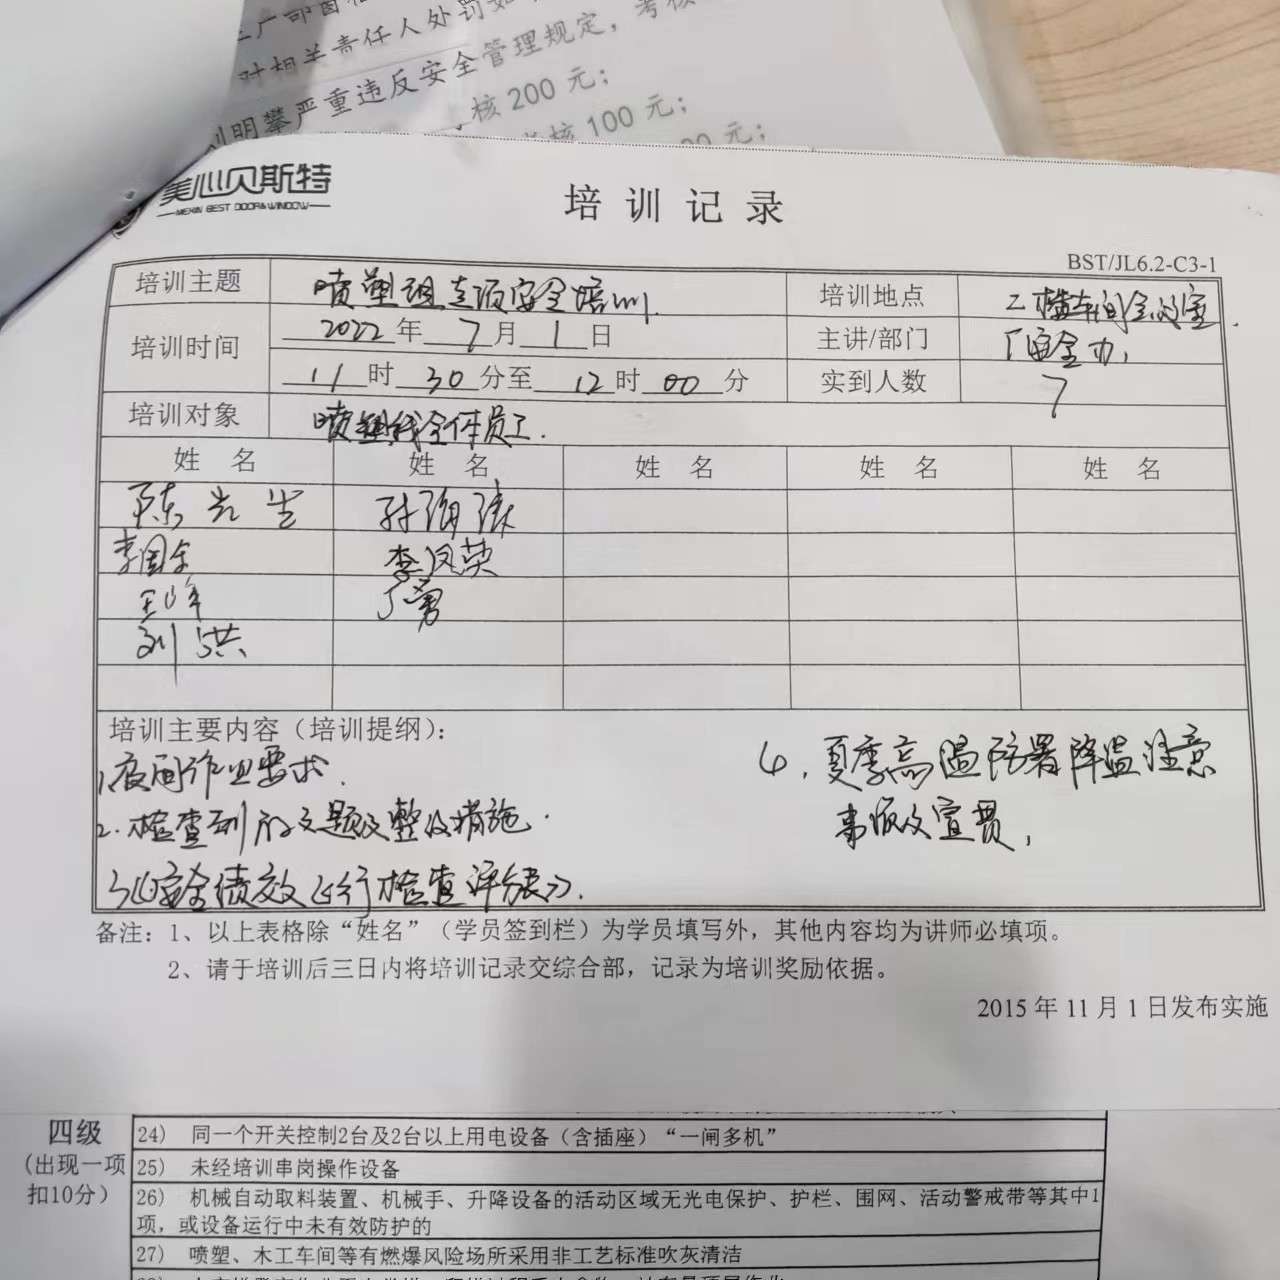 对相关责任人处罚如
明攀严重违反安全管理规定，考核
核200元；
核100元；
元；
美心贝斯特
MEXIN BEST DOOR&WINDOW
培训记录
BST/JL6.2-C3-1
培训主题 喷塑组专项安全培训 培训地点 乙楼车间会议室
培训时间 2022年7月1日 主讲/部门 厂安全办
11时30分至12时00分 实到人数 7
培训对象 喷塑线全体员工
姓 名 姓 名 姓 名 姓 名 姓 名
陈光华 孙海
李国 李凤英
王峰 丁勇
刘洪
培训主要内容（培训提纲）：
1、夜间作业要求.
2.检查到的问题及整改措施.
3、《安全绩效飞行检查评分表》.
4、夏季高温防署降温注意
事项及宣贯,
备注：1、以上表格除“姓名”（学员签到栏）为学员填写外，其他内容均为讲师必填项。
2、请于培训后三日内将培训记录交综合部，记录为培训奖励依据。
2015年11月1日发布实施
四级
（出现一项
扣10分）
24) 同一个开关控制2台及2台以上用电设备（含插座）“一闸多机”
25) 未经培训串岗操作设备
26) 机械自动取料装置、机械手、升降设备的活动区域无光电保护、护栏、围网、活动警戒带等其中1
项，或设备运行中未有效防护的
27) 喷塑、木工车间等有燃爆风险场所采用非工艺标准吹灰清洁